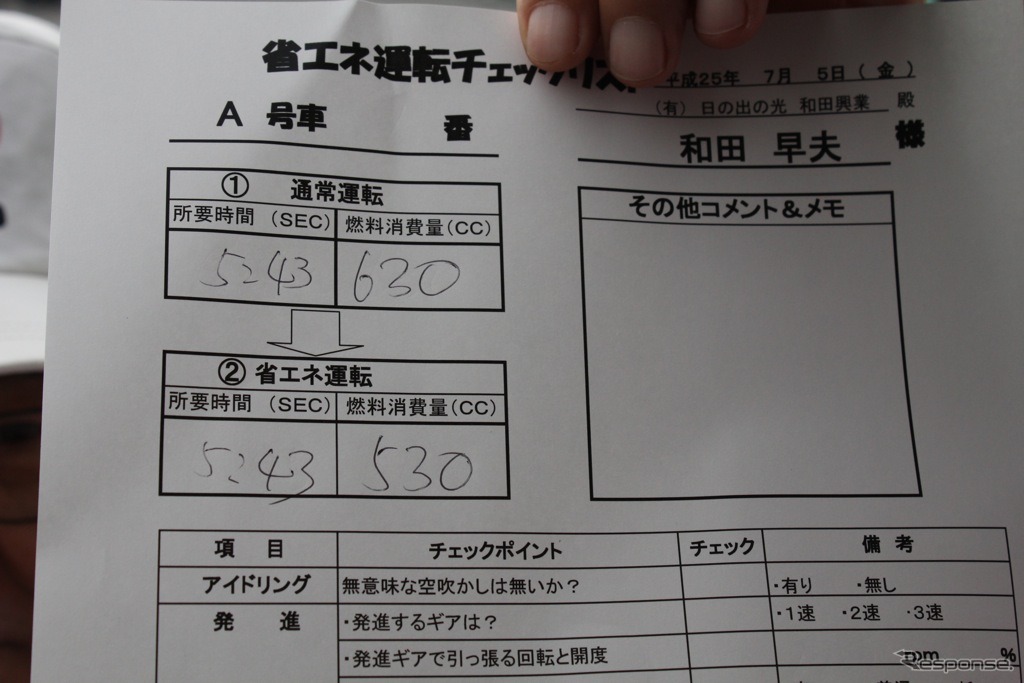 省エネ運転チェックリスト
平成25年 7月 5日(金)
(有) 日の出の光 和田興業 殿
A 号車 番
和田 早夫 様
① 通常運転
所要時間 (SEC) 燃料消費量(CC)
5:43 630
② 省エネ運転
所要時間 (SEC) 燃料消費量(CC)
5:43 530
その他コメント&メモ
項 目 チェックポイント チェック 備 考
アイドリング 無意味な空吹かしは無いか? ・有り ・無し
発 進 ・発進するギアは? ・1速 ・2速 ・3速
・発進ギアで引っ張る回転と開度 rpm %
Response.